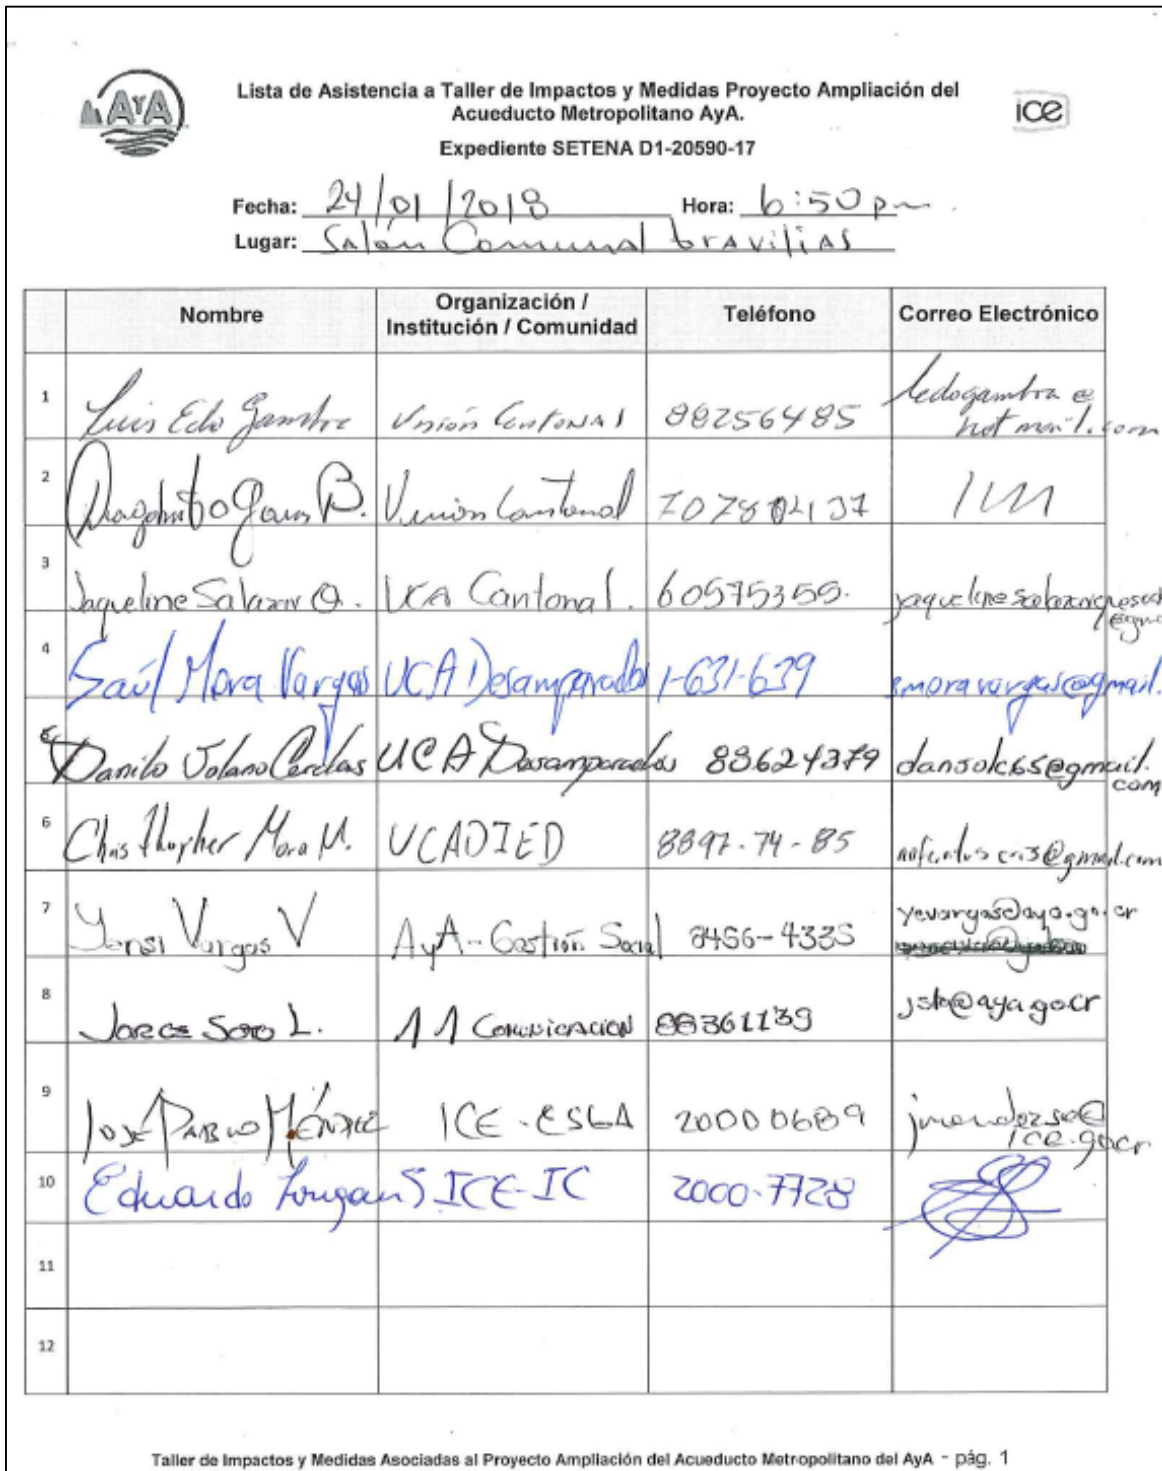 AyA
Lista de Asistencia a Taller de Impactos y Medidas Proyecto Ampliación del
Acueducto Metropolitano AyA.
ice
Expediente SETENA D1-20590-17
Fecha: 24/01/2018 Hora: 6:50 pm.
Lugar: Salón Comunal Gravilias
Nombre Organización / Institución / Comunidad Teléfono Correo Electrónico
1 Luis Edo Gamboa Visión Cantonal 88256485 ledogamboa@hotmail.com
2 B. Visión Cantonal
3 Jaqueline Salazar Q. UCA Cantonal. 60575355.
4 Saúl Mora Vargas UCA Desamparados 1-631-639 smoravargas@gmail.
5 Danilo Solano Cerdas UCA Desamparados 88624379 dansolc65@gmail.com
6 Christhopher Mora M. UCADIED 8897-74-85
7 Yensi Vargas V AyA-Gestión Social 8456-4335 yevargas@aya.go.cr
8 Jorge Soto L. 11 Comunicación 88361139 jsto@aya.go.cr
9 José Pablo Méndez ICE-ESGA 20000689
10 Eduardo ICE-IC 2000-7728
11
12
Taller de Impactos y Medidas Asociadas al Proyecto Ampliación del Acueducto Metropolitano del AyA - pág. 1